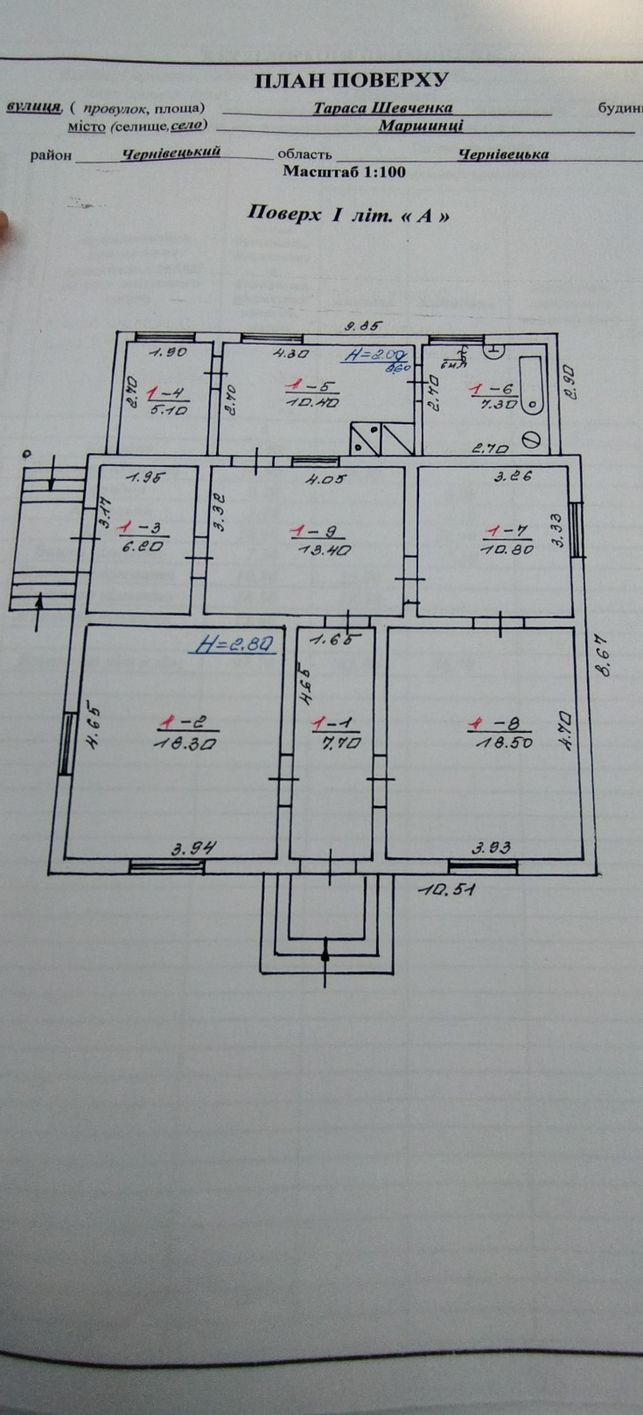 ПЛАН ПОВЕРХУ
вулиця, ( провулок, площа) Тараса Шевченка будин
місто (селище, село) Маршинці
район Чернівецький область Чернівецька
Масштаб 1:100
Поверх I літ. « А »
9.85
1.90
4.30
H=2.00
2.70
1-4
5.10
2.70
1-5
10.40
2.70
1-6
7.30
2.90
2.70
1.95
4.05
3.26
3.17
1-3
6.20
3.32
1-9
13.40
1-7
10.80
3.33
H=2.80
1.65
8.67
4.65
1-2
18.30
4.65
1-1
7.70
1-8
18.50
4.70
3.94
3.93
10.51